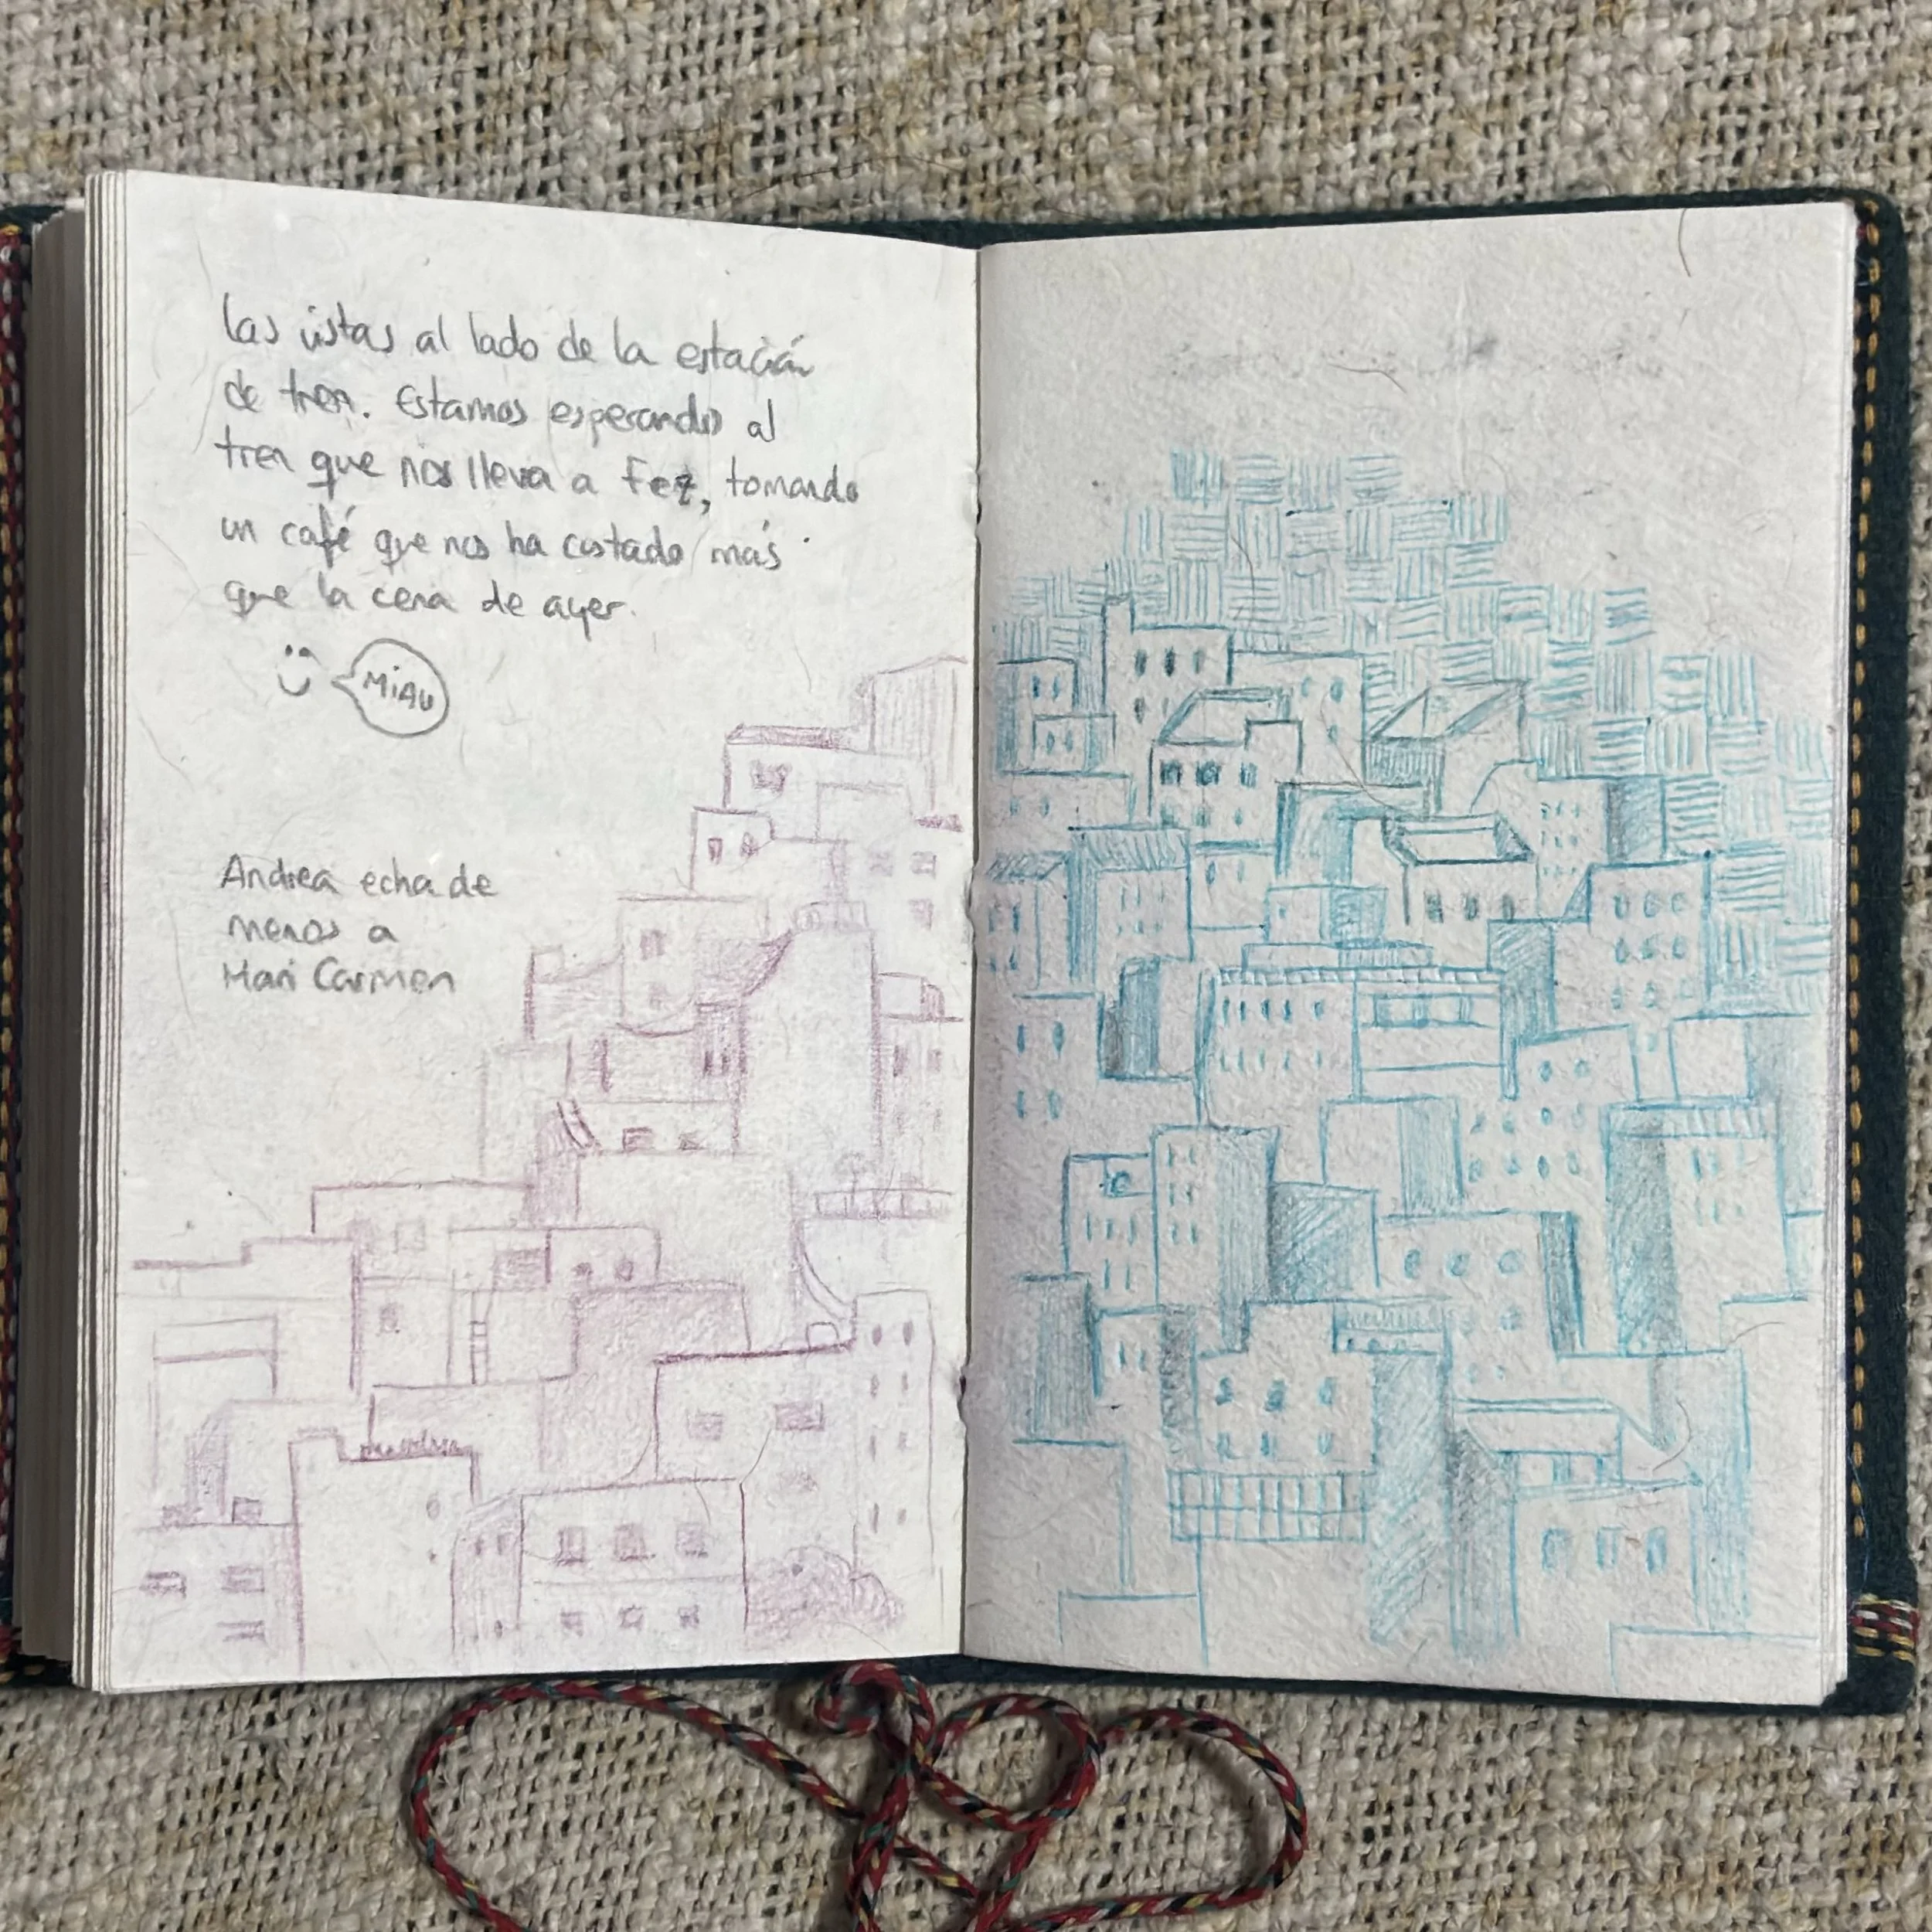 Las vistas al lado de la estación
de tren. Estamos esperando al
tren que nos lleva a Fez, tomando
un café que nos ha costado más
que la cena de ayer.
MiAU
Andrea echa de
menos a
Mari Carmen